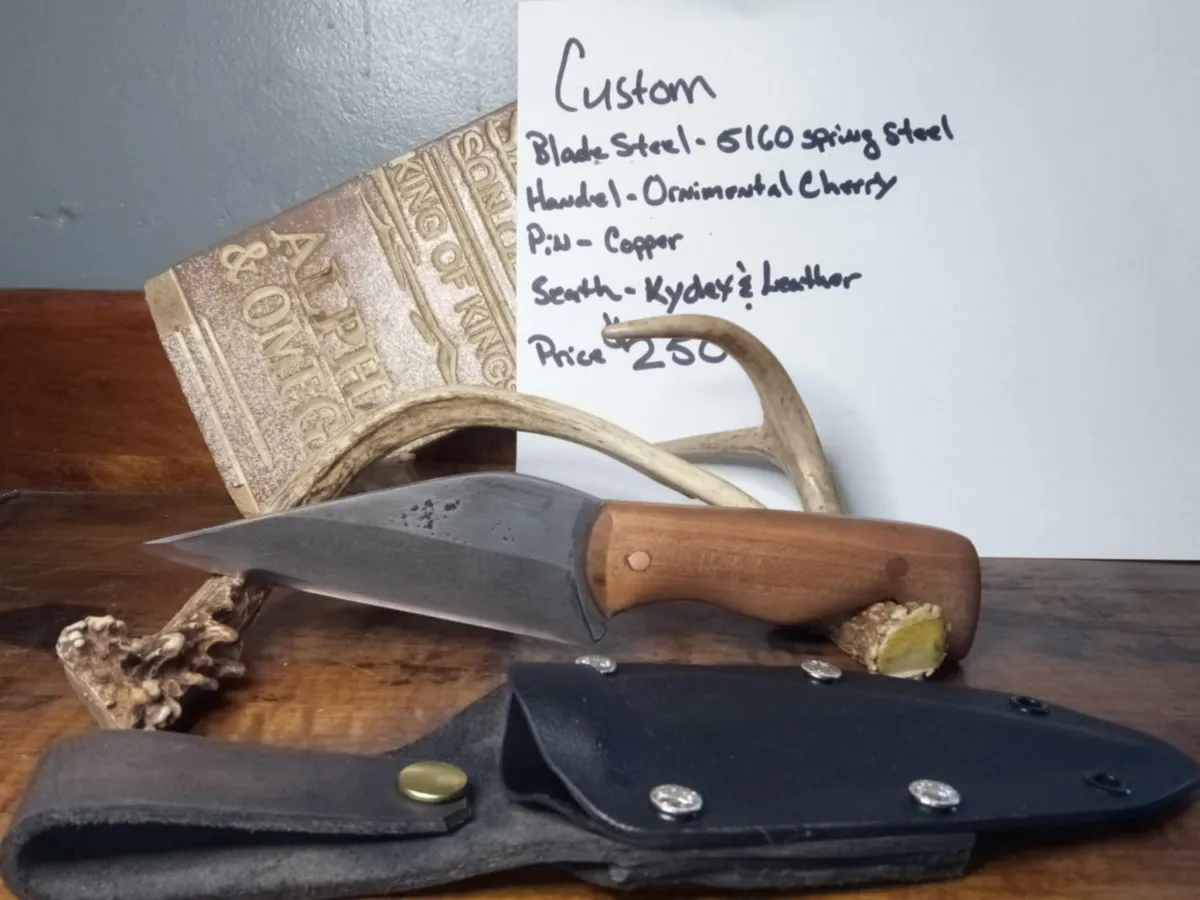 Custom
Blade Steel - 5160 spring steel
Handel - Ornimental Cherry
Pin - Copper
Seath - Kydex & Leather
Price $250
ALPHA
& OMEG
KING OF KINGS